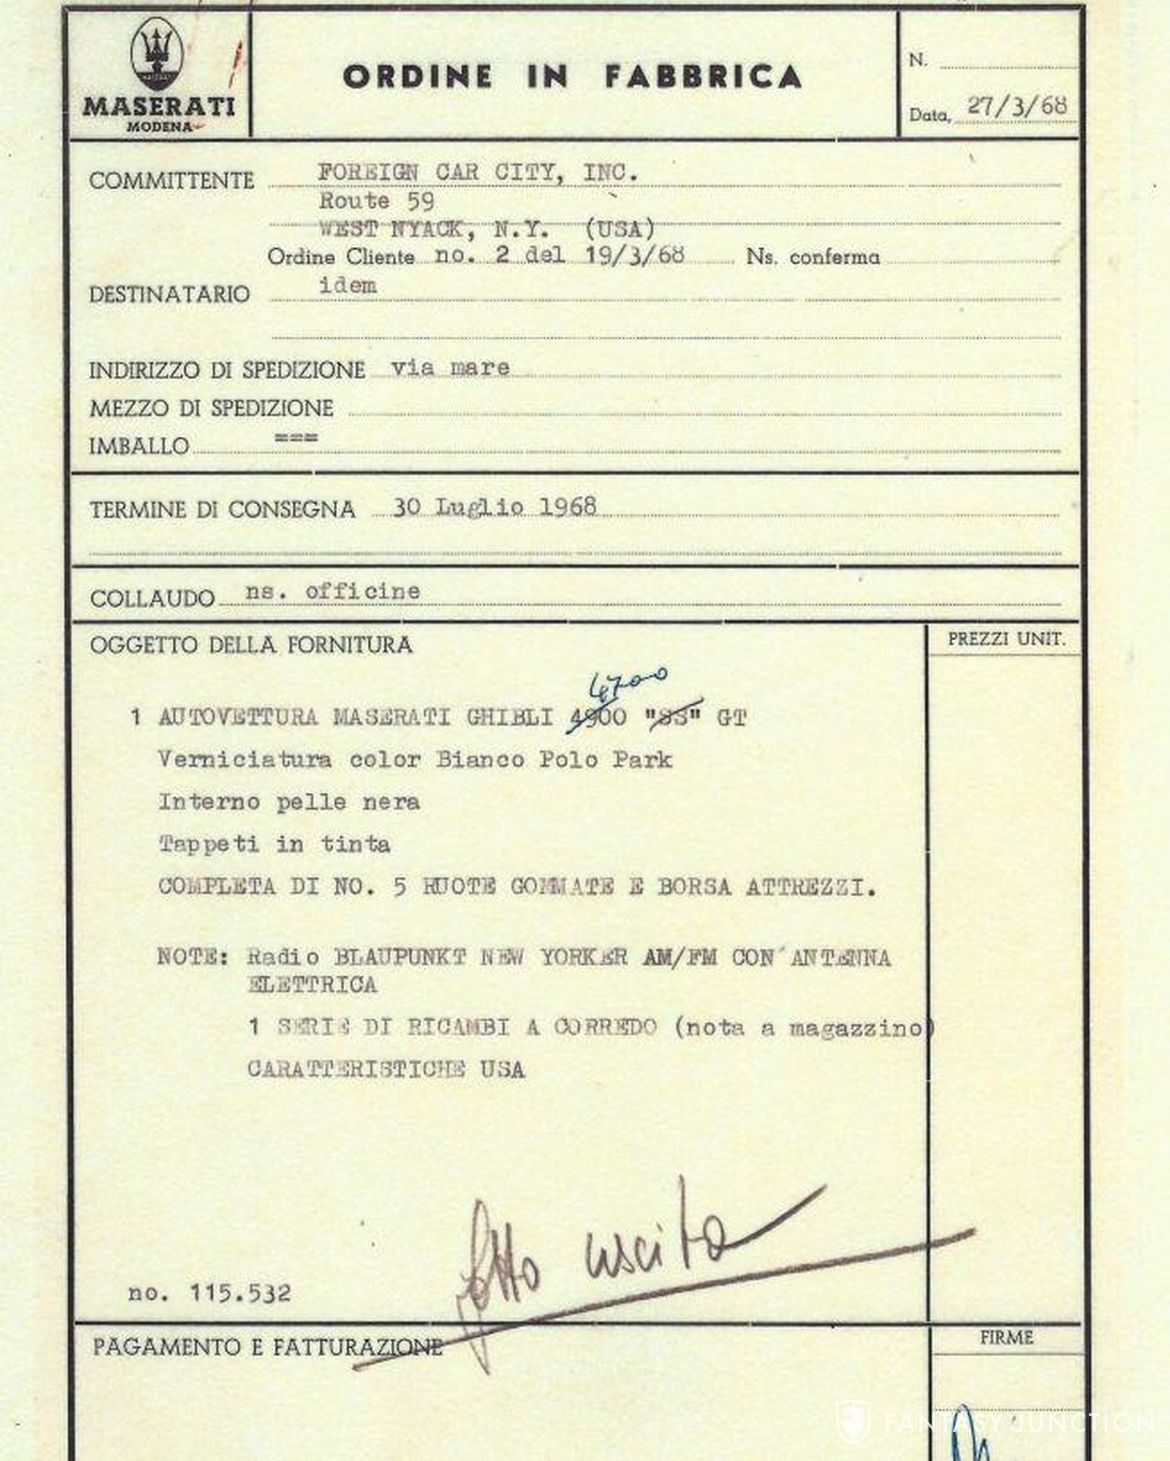 MASERATI
MODENA
ORDINE IN FABBRICA
N.
Data, 27/3/68
COMMITTENTE FOREIGN CAR CITY, INC.
Route 59
WEST NYACK, N.Y. (USA)
Ordine Cliente no. 2 del 19/3/68 Ns. conferma
DESTINATARIO idem
INDIRIZZO DI SPEDIZIONE via mare
MEZZO DI SPEDIZIONE
IMBALLO ===
TERMINE DI CONSEGNA 30 Luglio 1968
COLLAUDO ns. officine
OGGETTO DELLA FORNITURA
PREZZI UNIT.
4700
1 AUTOVETTURA MASERATI GHIBLI 4900 "SS" GT
Verniciatura color Bianco Polo Park
Interno pelle nera
Tappeti in tinta
COMPLETA DI NO. 5 RUOTE GOMMATE E BORSA ATTREZZI.
NOTE: Radio BLAUPUNKT NEW YORKER AM/FM CON ANTENNA
ELETTRICA
1 SERIE DI RICAMBI A CORREDO (nota a magazzino)
CARATTERISTICHE USA
fatto uscita
no. 115.532
PAGAMENTO E FATTURAZIONE
FIRME
FANTASY JUNCTION